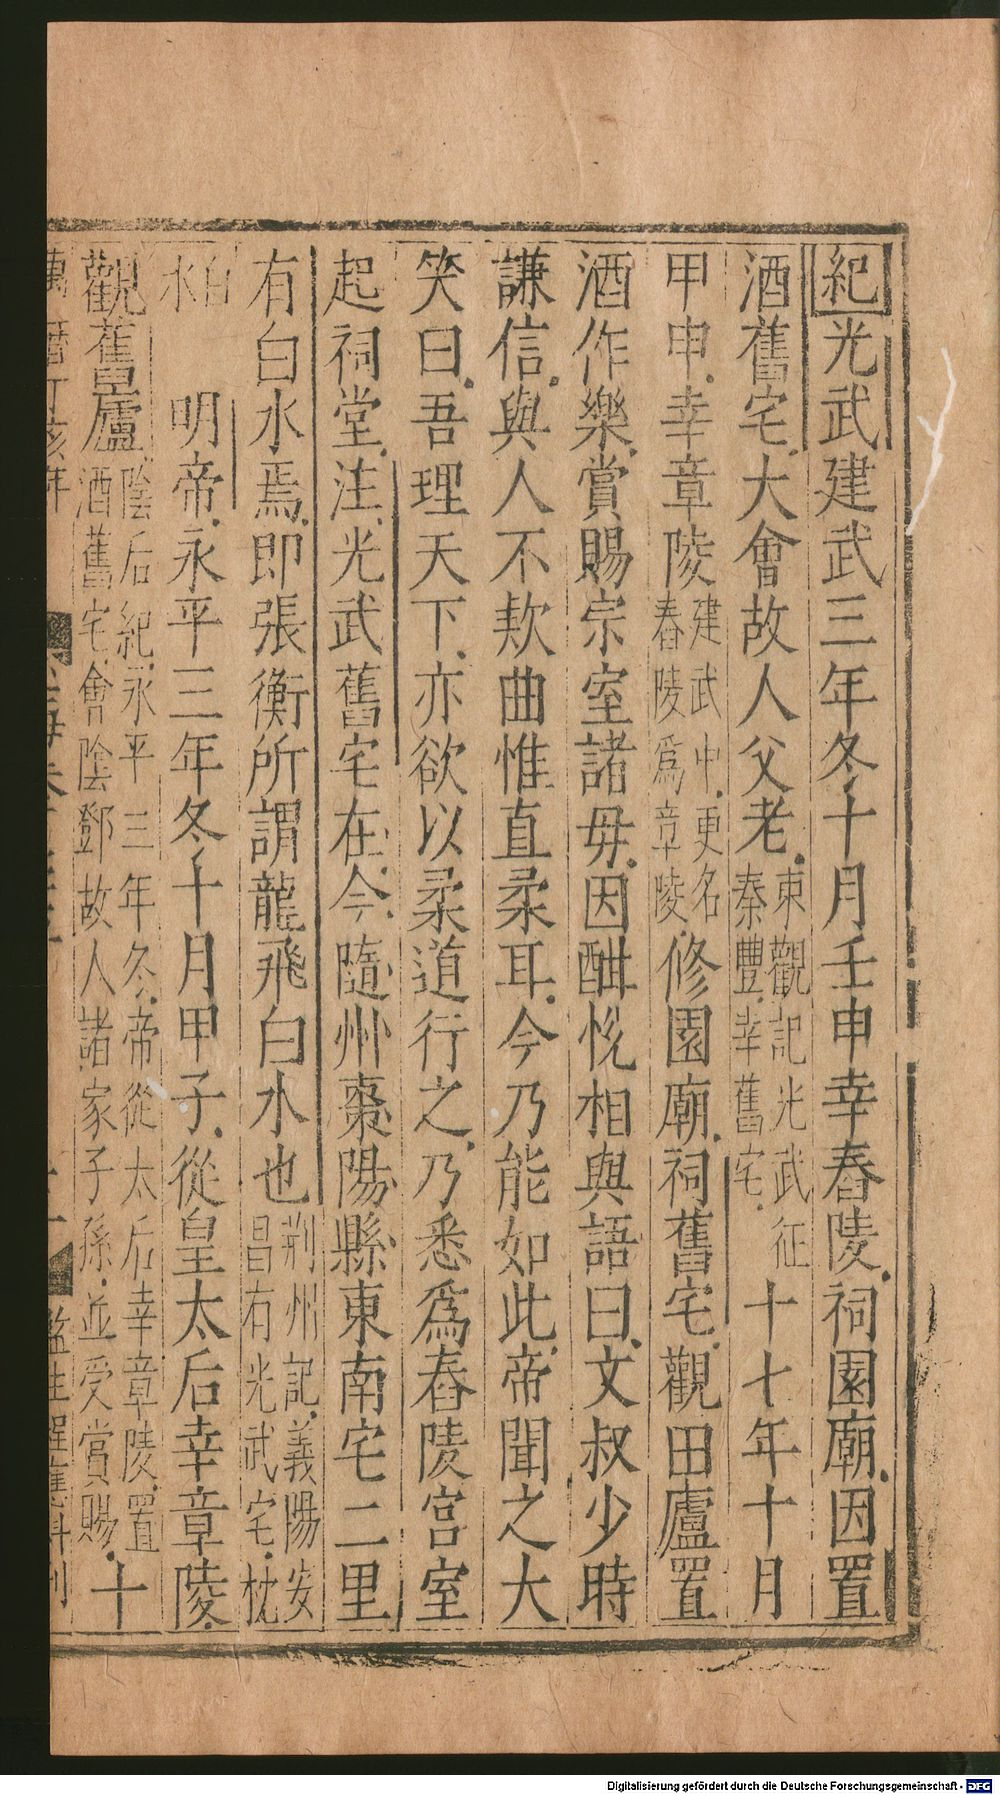 紀光武建武三年冬十月壬申幸舂陵祠園廟因置
酒舊宅大會故人父老東觀記光武征秦豐幸舊宅十七年十月
甲申幸章陵建武中更名舂陵爲章陵修園廟祠舊宅觀田廬置
酒作樂賞賜宗室諸毋因酣恱相與語曰文叔少時
謙信與人不欵曲惟直柔耳今乃能如此帝聞之大
笑曰吾理天下亦欲以柔道行之乃悉爲舂陵宮室
起祠堂注光武舊宅在今隨州棗陽縣東南宅二里
有白水焉即張衡所謂龍飛白水也荆州記義陽安昌有光武宅枕
白水 明帝永平三年冬十月甲子從皇太后幸章陵
觀舊廬陰后紀永平三年冬帝從太后幸章陵置酒舊宅會陰鄧故人諸家子孫並受賞賜十
萬曆丁亥年
監生程應
Digitalisierung gefördert durch die Deutsche Forschungsgemeinschaft - DFG